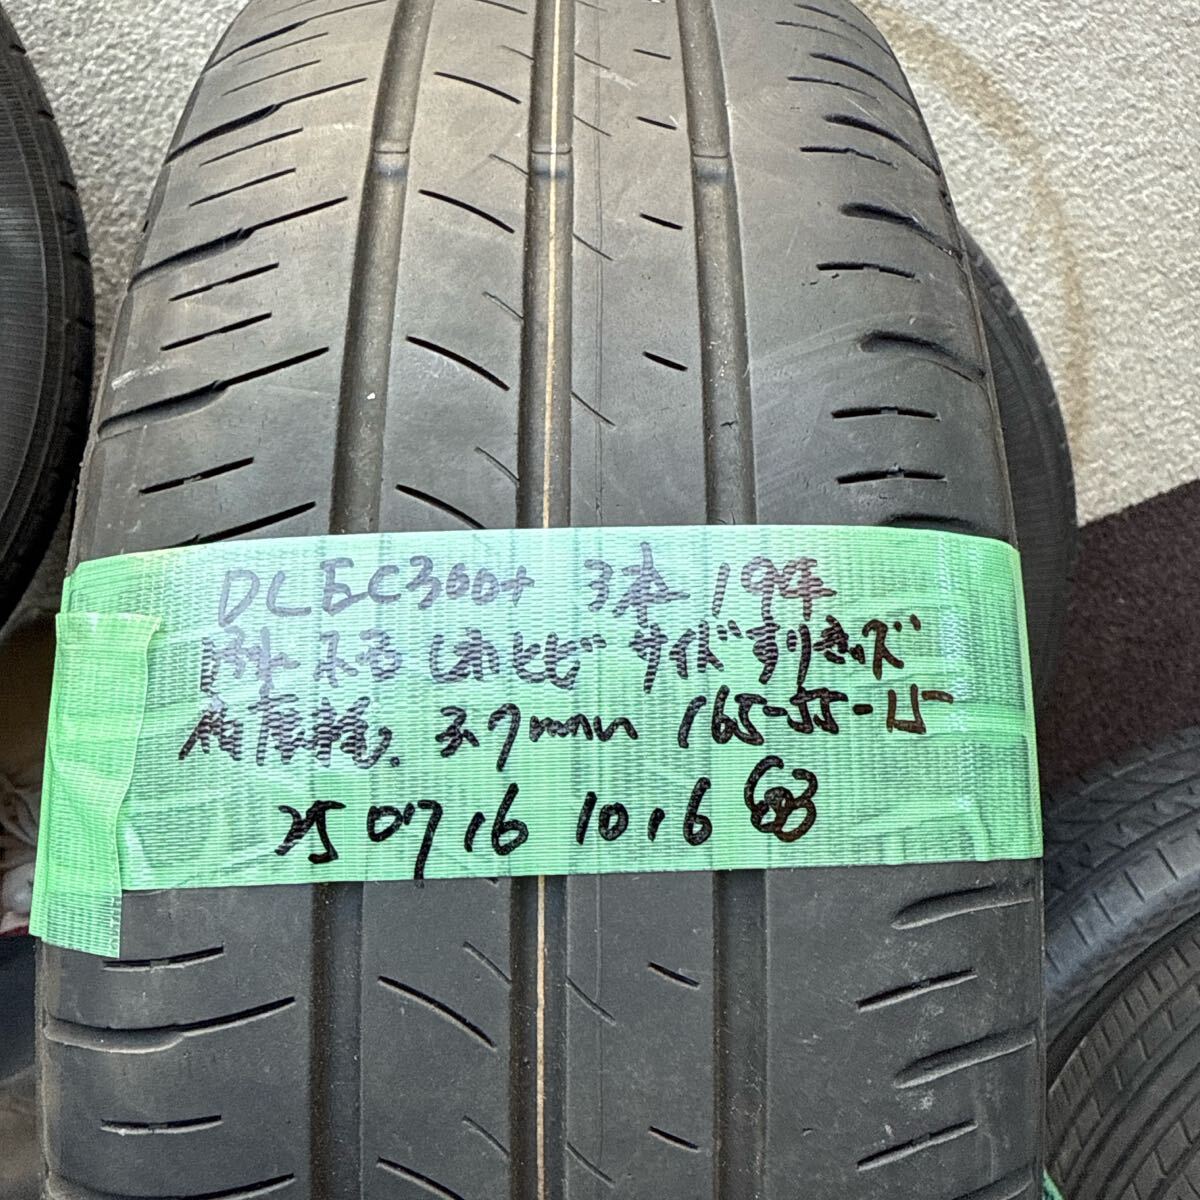 DL EC300+ 3本 19年
ヒビ サイドすりキズ
摩耗. 3.7mm 165-55-15
250716 1016 603